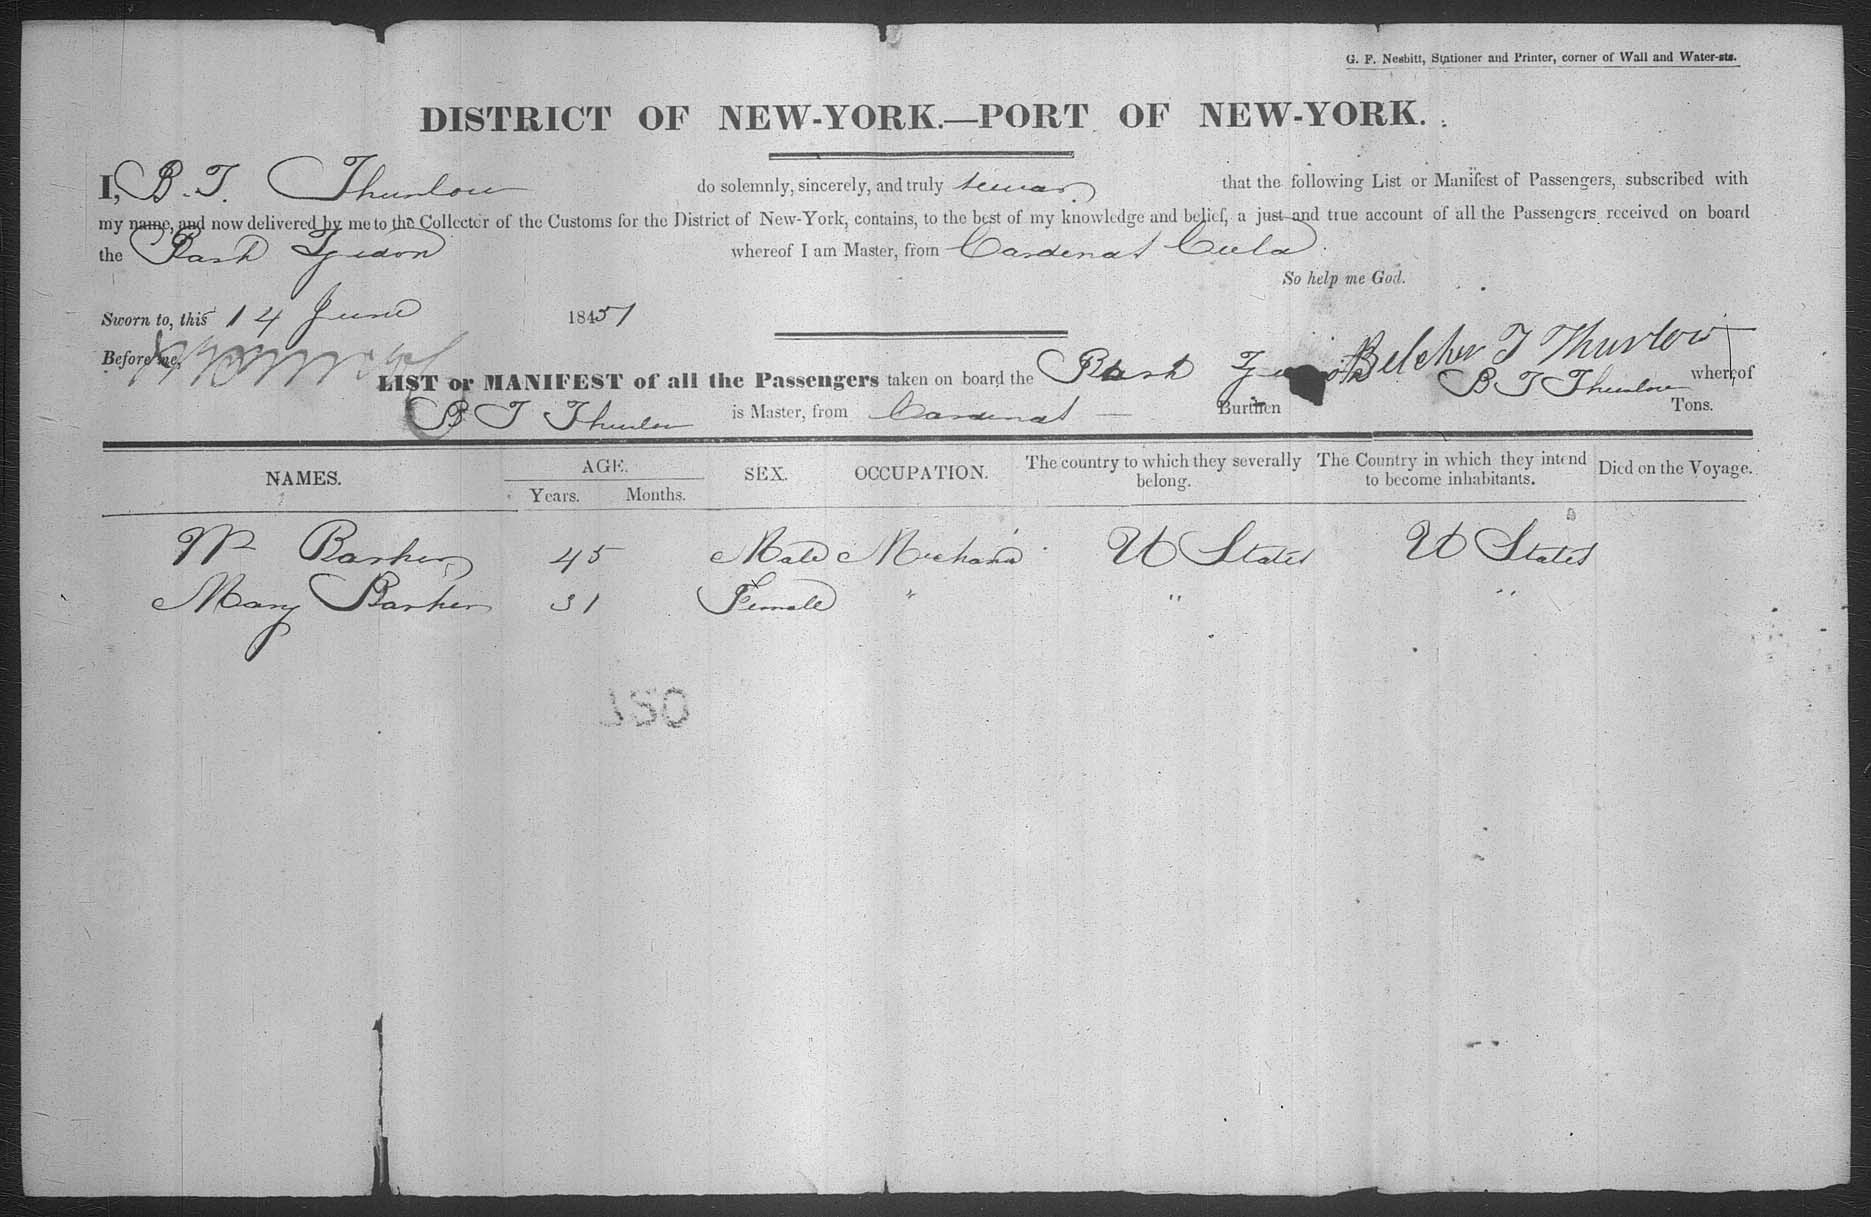 G. F. Nesbitt, Stationer and Printer, corner of Wall and Water-sts.
DISTRICT OF NEW-YORK.—PORT OF NEW-YORK.
I, B. T. Thurlow do solemnly, sincerely, and truly swear that the following List or Manifest of Passengers, subscribed with
my name, and now delivered by me to the Collector of the Customs for the District of New-York, contains, to the best of my knowledge and belief, a just and true account of all the Passengers received on board
the Bark whereof I am Master, from Cardenas Cuba
So help me God.
Sworn to, this 14 June 18451
Before me, Belcher T Thurlow
LIST or MANIFEST of all the Passengers taken on board the Bark B T Thurlow whereof
B T Thurlow is Master, from Cardenas — Burthen Tons.
NAMES. AGE. SEX. OCCUPATION. The country to which they severally belong. The Country in which they intend to become inhabitants. Died on the Voyage.
Years. Months.
Wm Barker 45 Male Mechanic U States U States
Mary Barker 31 Female " " "
150